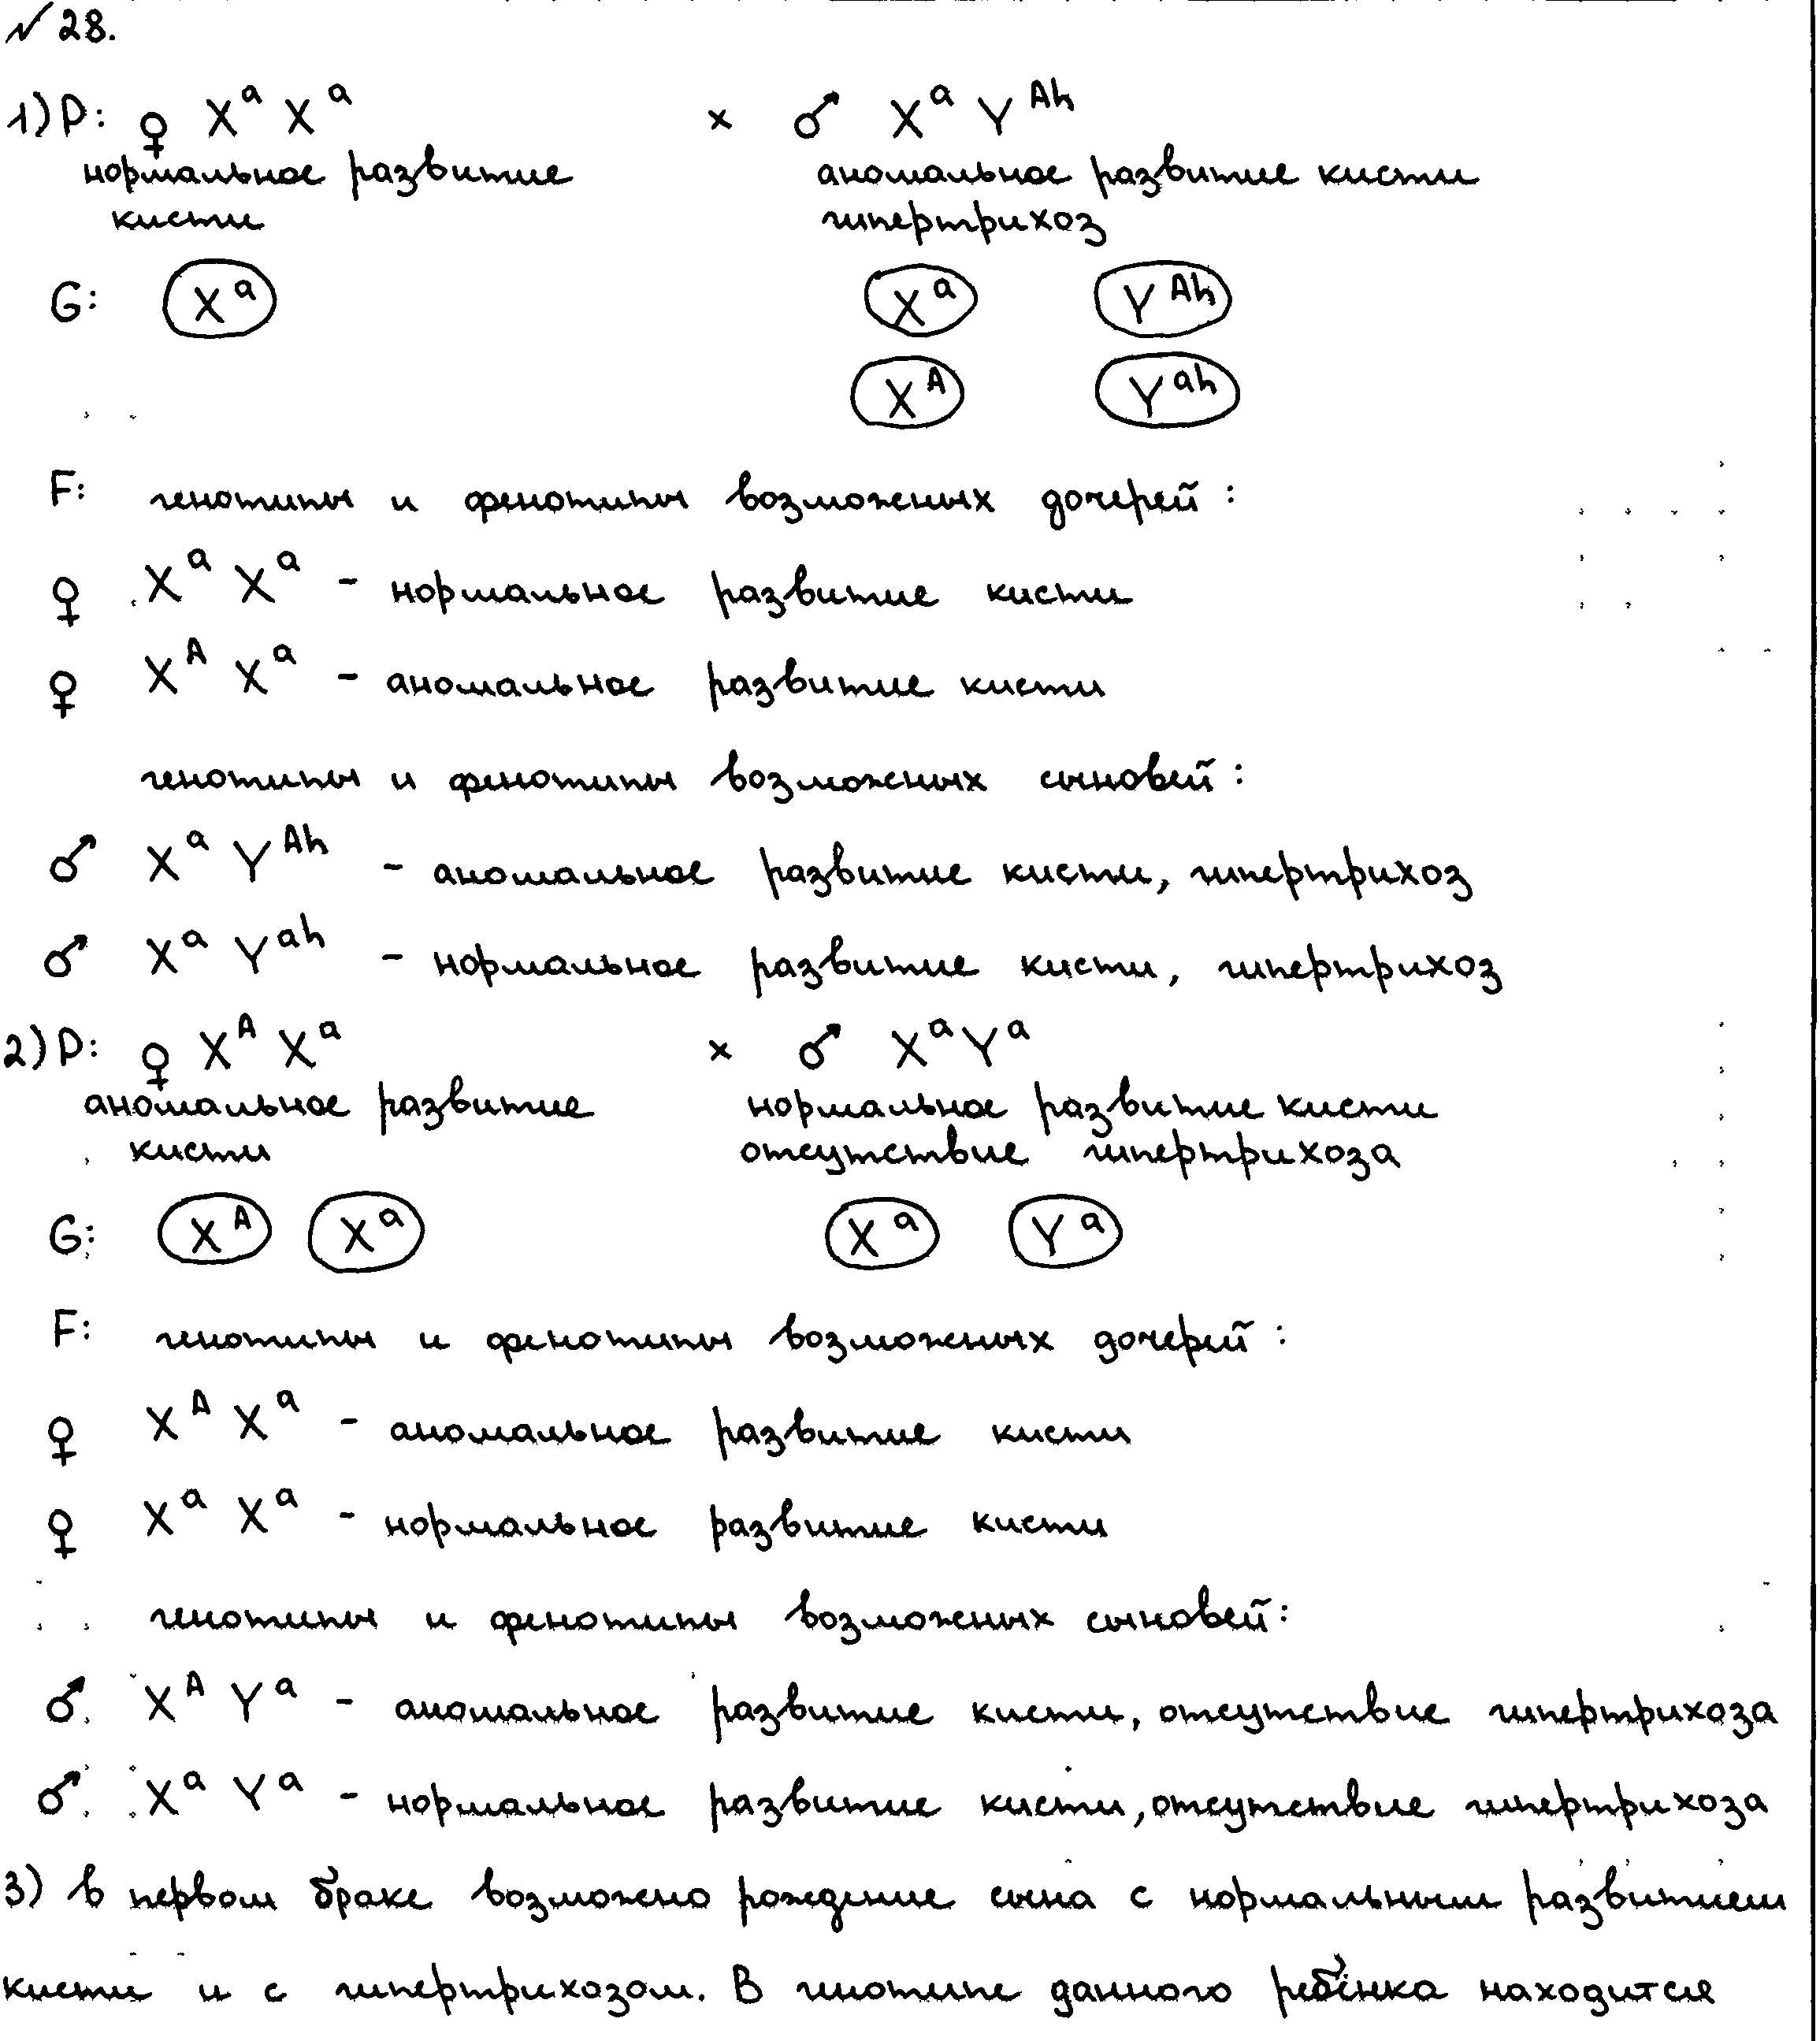 № 28.
1) P: ♀ Xᵃ Xᵃ × ♂ Xᵃ Yᴬʰ
нормальное развитие аномальное развитие кисти
кисти гипертрихоз
G: Xᵃ Xᵃ Yᴬʰ
Xᴬ Yᵃʰ
F: генотипы и фенотипы возможных дочерей:
♀ Xᵃ Xᵃ - нормальное развитие кисти
♀ Xᴬ Xᵃ - аномальное развитие кисти
генотипы и фенотипы возможных сыновей:
♂ Xᵃ Yᴬʰ - аномальное развитие кисти, гипертрихоз
♂ Xᵃ Yᵃʰ - нормальное развитие кисти, гипертрихоз
2) P: ♀ Xᴬ Xᵃ × ♂ Xᵃ Yᵃ
аномальное развитие нормальное развитие кисти
кисти отсутствие гипертрихоза
G: Xᴬ Xᵃ Xᵃ Yᵃ
F: генотипы и фенотипы возможных дочерей:
♀ Xᴬ Xᵃ - аномальное развитие кисти
♀ Xᵃ Xᵃ - нормальное развитие кисти
генотипы и фенотипы возможных сыновей:
♂ Xᴬ Yᵃ - аномальное развитие кисти, отсутствие гипертрихоза
♂ Xᵃ Yᵃ - нормальное развитие кисти, отсутствие гипертрихоза
3) в первом браке возможно рождение сына с нормальным развитием
кисти и с гипертрихозом. В генотипе данного ребёнка находится